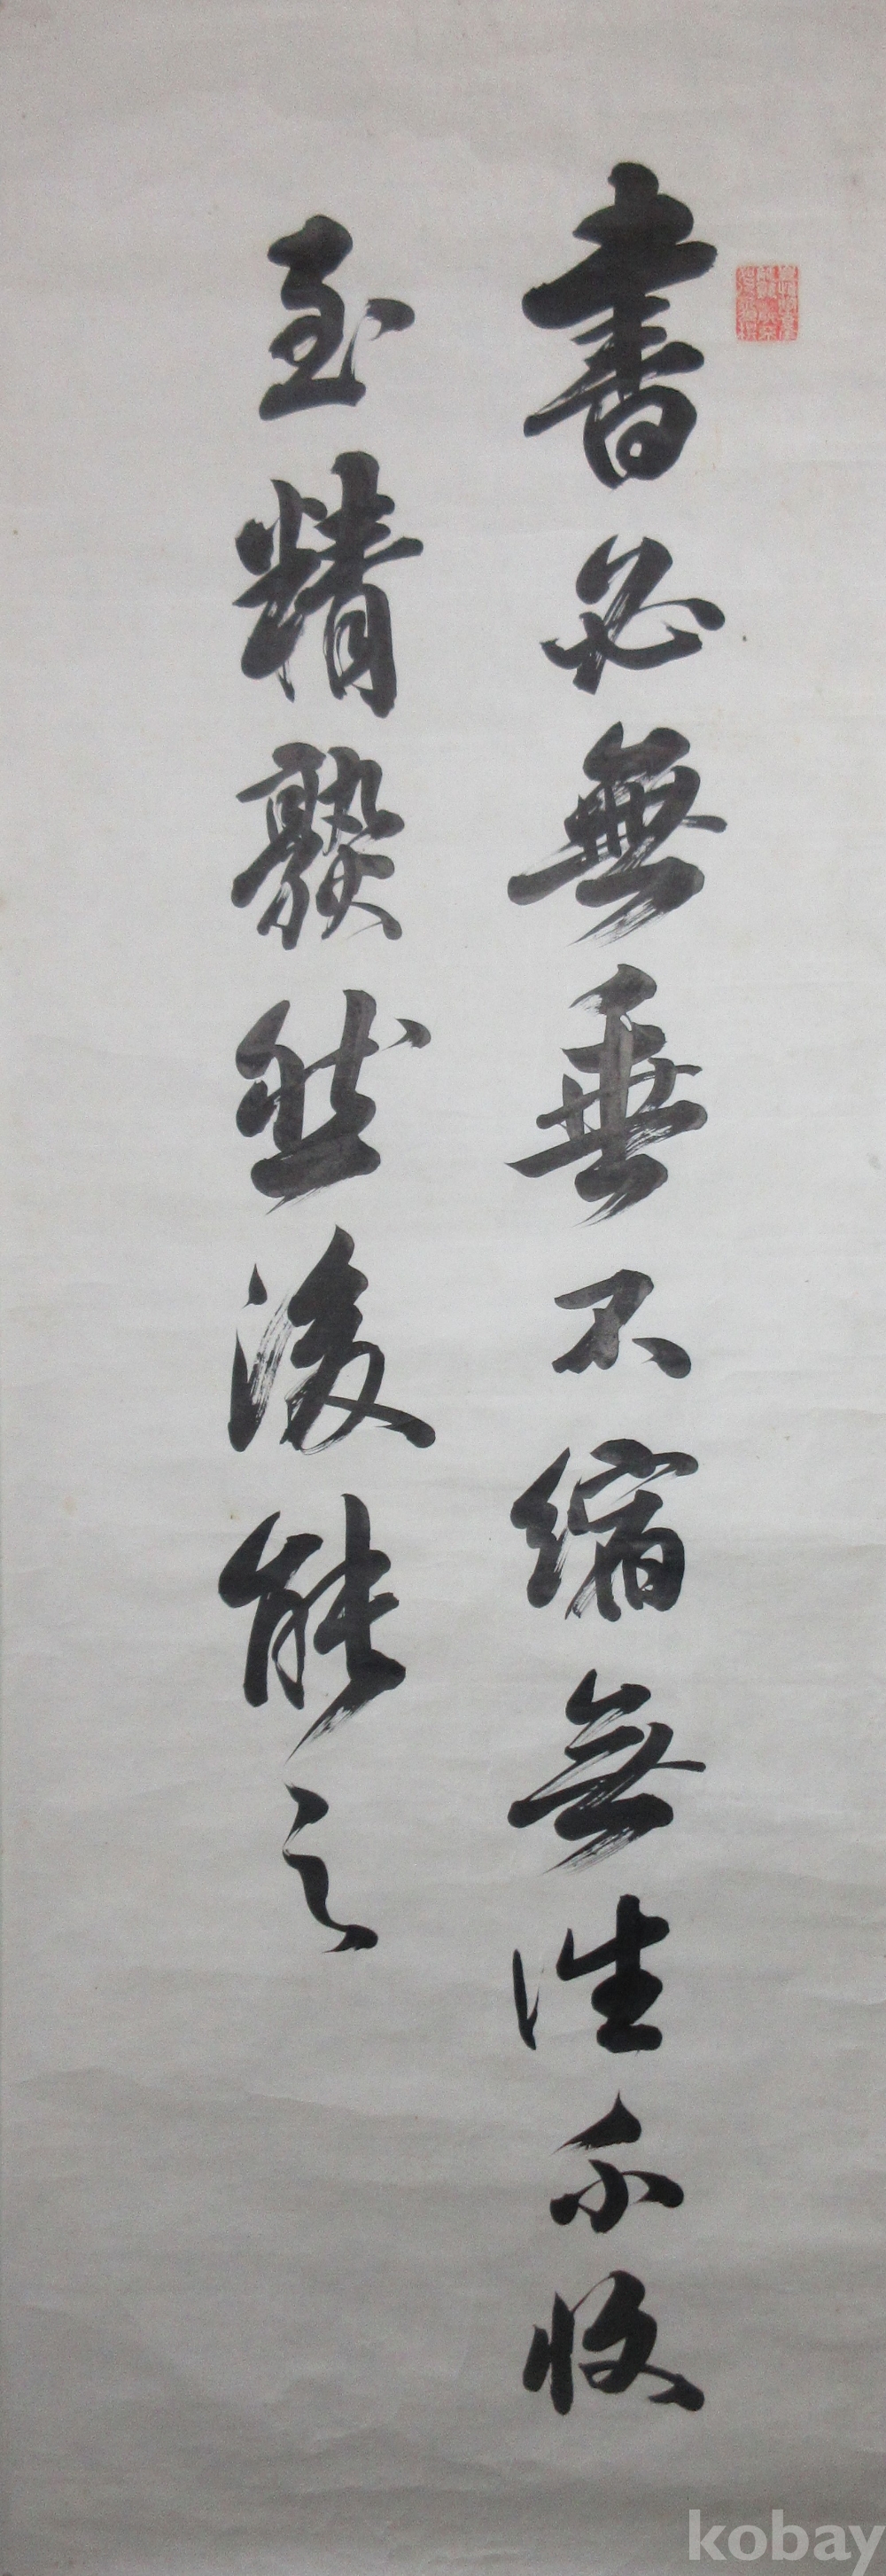 書必無垂不縮無往不收
至精熟然後能之
kobay